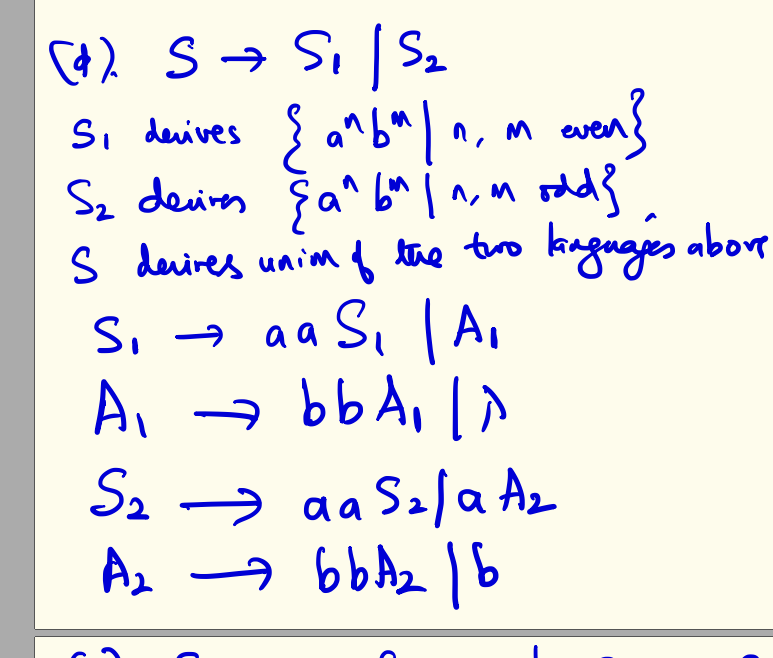 (d). S → S₁ | S₂
S₁ derives { aⁿbᵐ | n, m even}
S₂ derives {aⁿ bᵐ | n, m odd}
S derives union of the two languages above
S₁ → aaS₁ | A₁
A₁ → bbA₁ | λ
S₂ → aaS₂ | aA₂
A₂ → bbA₂ | b